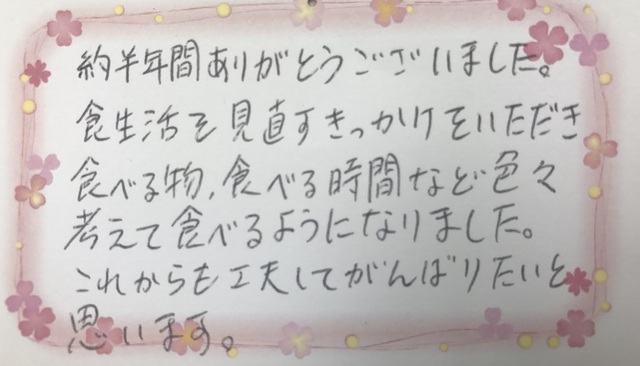 約半年間ありがとうございました。
食生活を見直すきっかけをいただき
食べる物、食べる時間など色々
考えて食べるようになりました。
これからも工夫してがんばりたいと
思います。